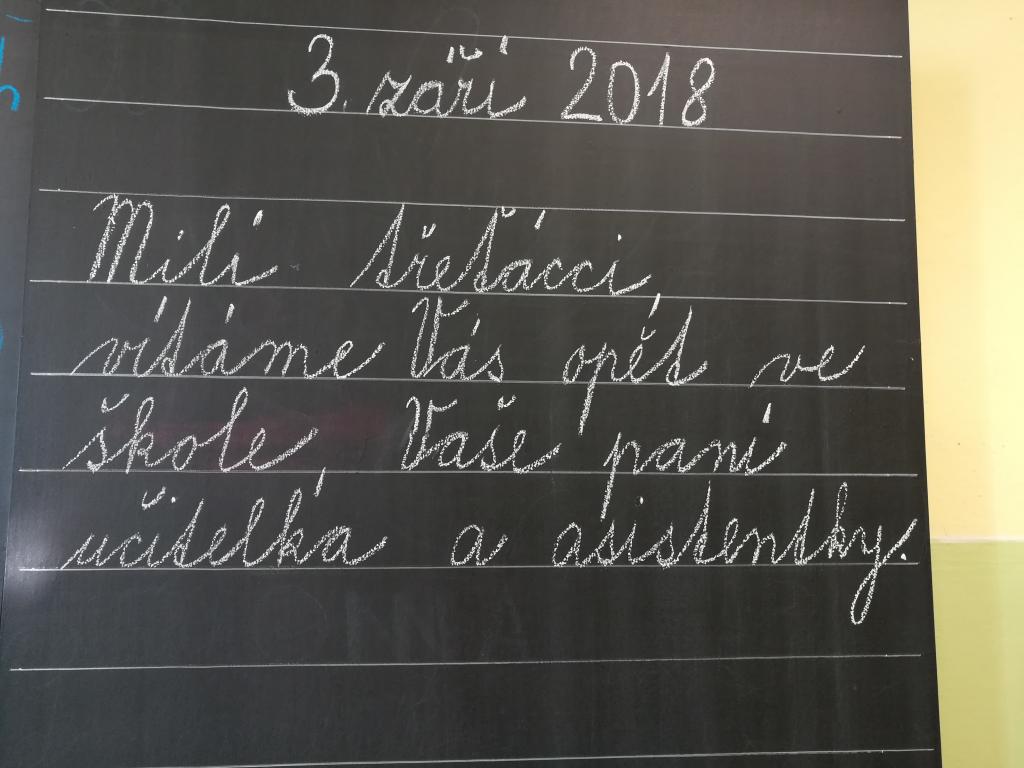 3. září 2018
Milí třeťácci,
vítáme Vás opět ve
škole, Vaše paní
učitelka a asistentky.